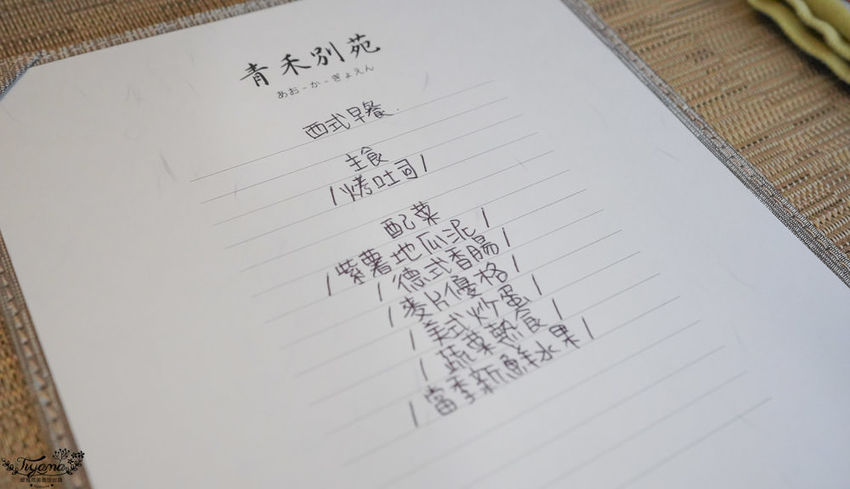 青禾別苑
あお-か-ぎょえん
西式早餐.
主食
/烤吐司/
配菜
/紫薯地瓜泥/
/德式香腸/
/麥片優格/
/美式炒蛋/
/蔬菜熱食/
/當季新鮮水果/
Tiyama